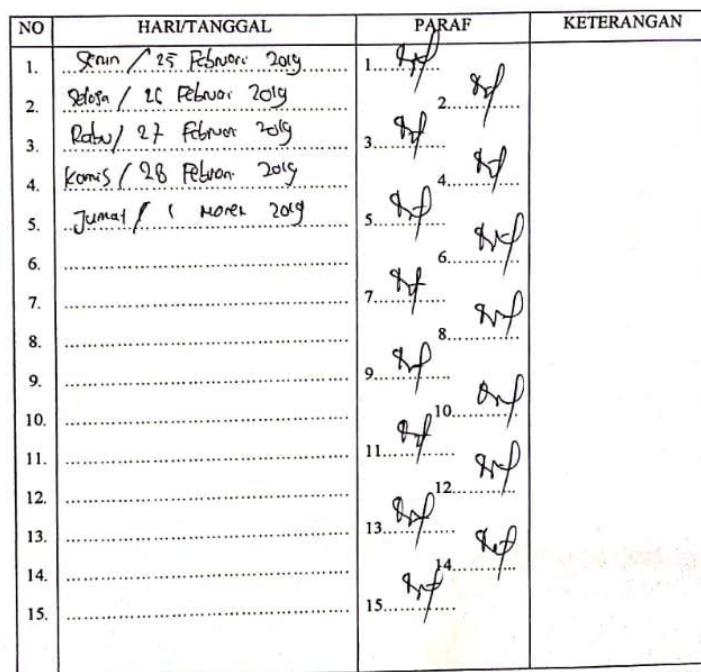 NO HARI/TANGGAL PARAF KETERANGAN
1. Senin / 25 Februari 2019 1.
2. Selasa / 26 Februari 2019 2.
3. Rabu / 27 Februari 2019 3.
4. Kamis / 28 Februari 2019 4.
5. Jumat / 1 Maret 2019 5.
6. 6.
7. 7.
8. 8.
9. 9.
10. 10.
11. 11.
12. 12.
13. 13.
14. 14.
15. 15.